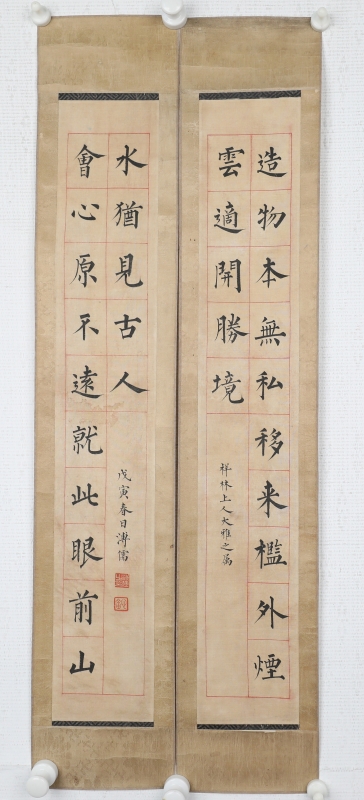 造物本無私移来檻外煙
雲適開勝境
祥林上人大雅之屬
會心原不遠就此眼前山
水猶見古人
戊寅春日溥儒